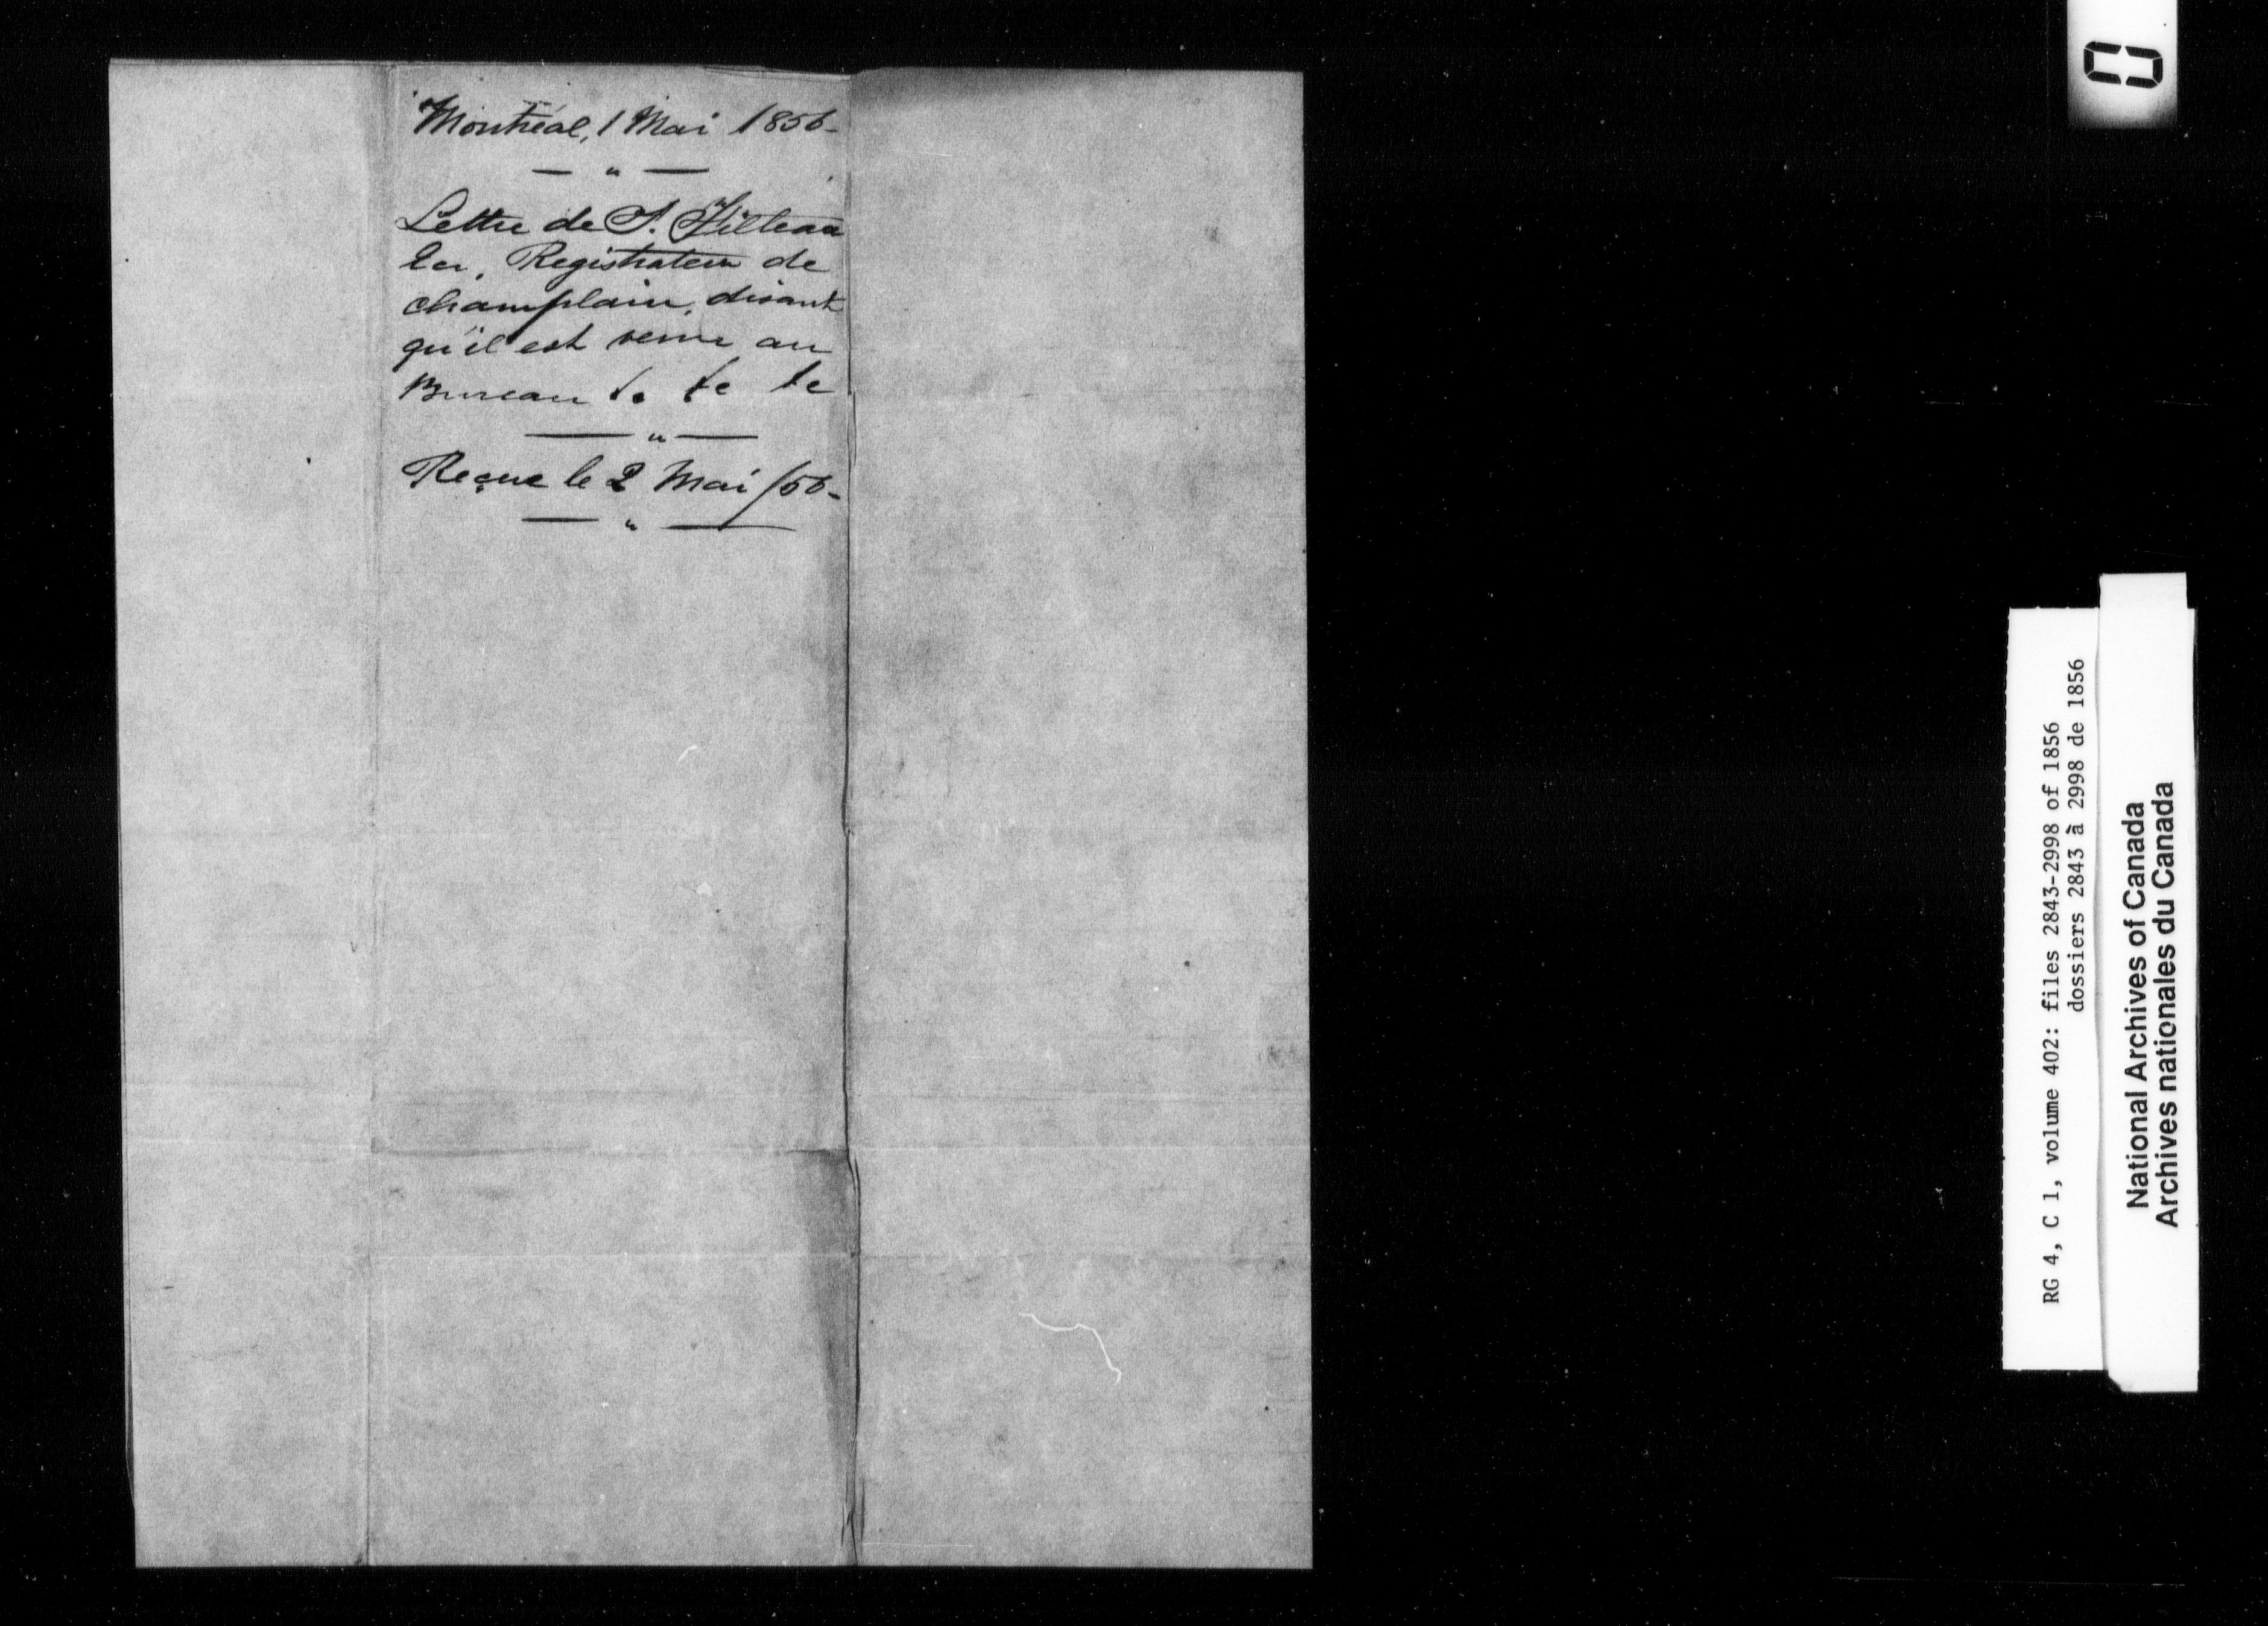 Montréal, 1 Mai 1856-
— " —
Lettre de P. Filteau
Registrateur de
Champlain, disant
qu'il est venu au
Bureau
— " —
Reçue le 2 Mai /56-
— " —
0
RG 4, C 1, volume 402: files 2843-2998 of 1856
dossiers 2843 à 2998 de 1856
National Archives of Canada
Archives nationales du Canada